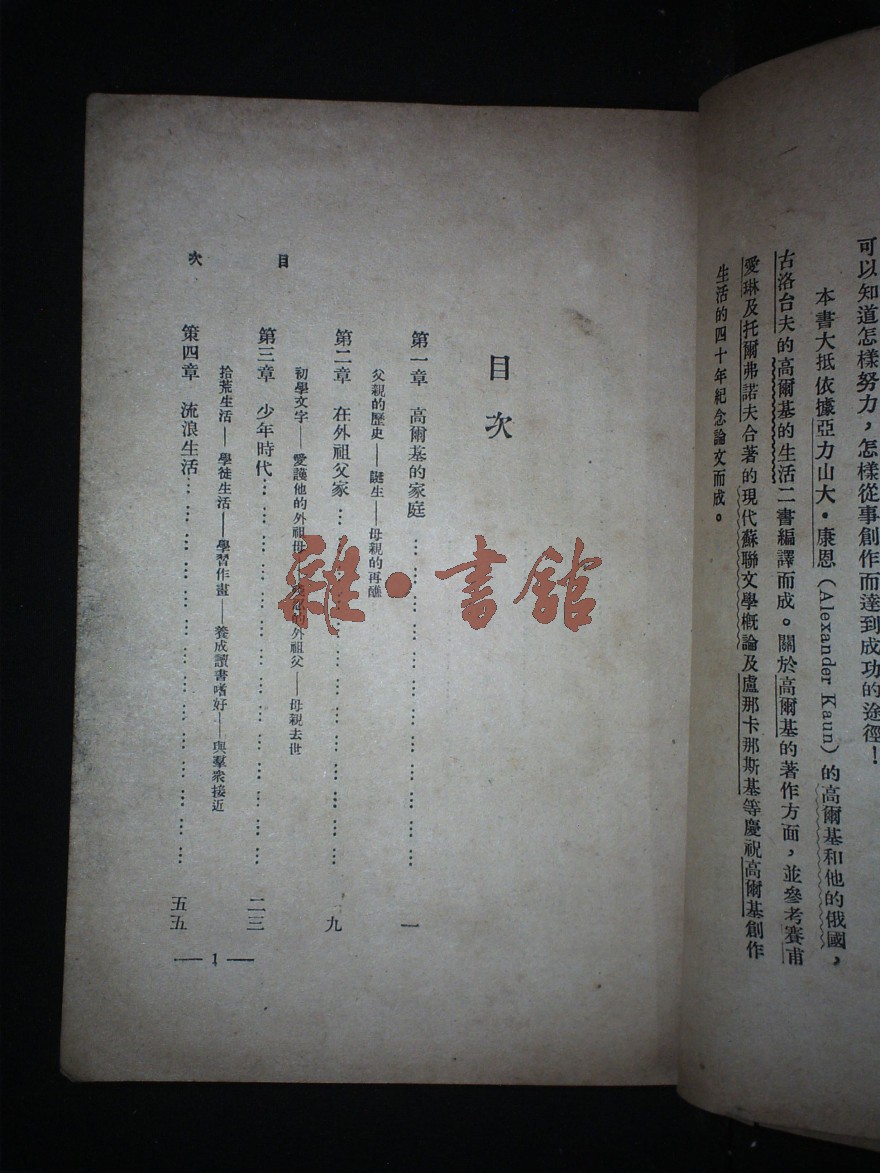 可以知道怎樣努力，怎樣從事創作而達到成功的途徑！
本書大抵依據亞力山大・康恩（Alexander Kaun）的高爾基和他的俄國，
古洛台夫的高爾基的生活二書編譯而成。關於高爾基的著作方面，並參考賽甫
愛琳及托爾弗諾夫合著的現代蘇聯文學概論及盧那卡那斯基等慶祝高爾基創作
生活的四十年紀念論文而成。
目次
第一章 高爾基的家庭………………一
父親的歷史——誕生——母親的再醮
第二章 在外祖父家………………九
初學文字——愛護他的外祖母——的外祖父——母親去世
第三章 少年時代………………二三
拾荒生活——學徒生活——學習作畫——養成讀書嗜好——與羣衆接近
第四章 流浪生活………………五五
目次
— 1 —
雜・書館